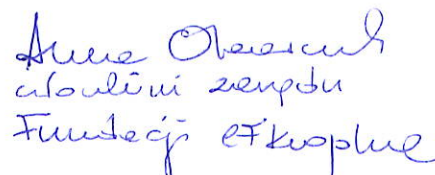 Anna
członkini zarządu
Fundacji eFkropka